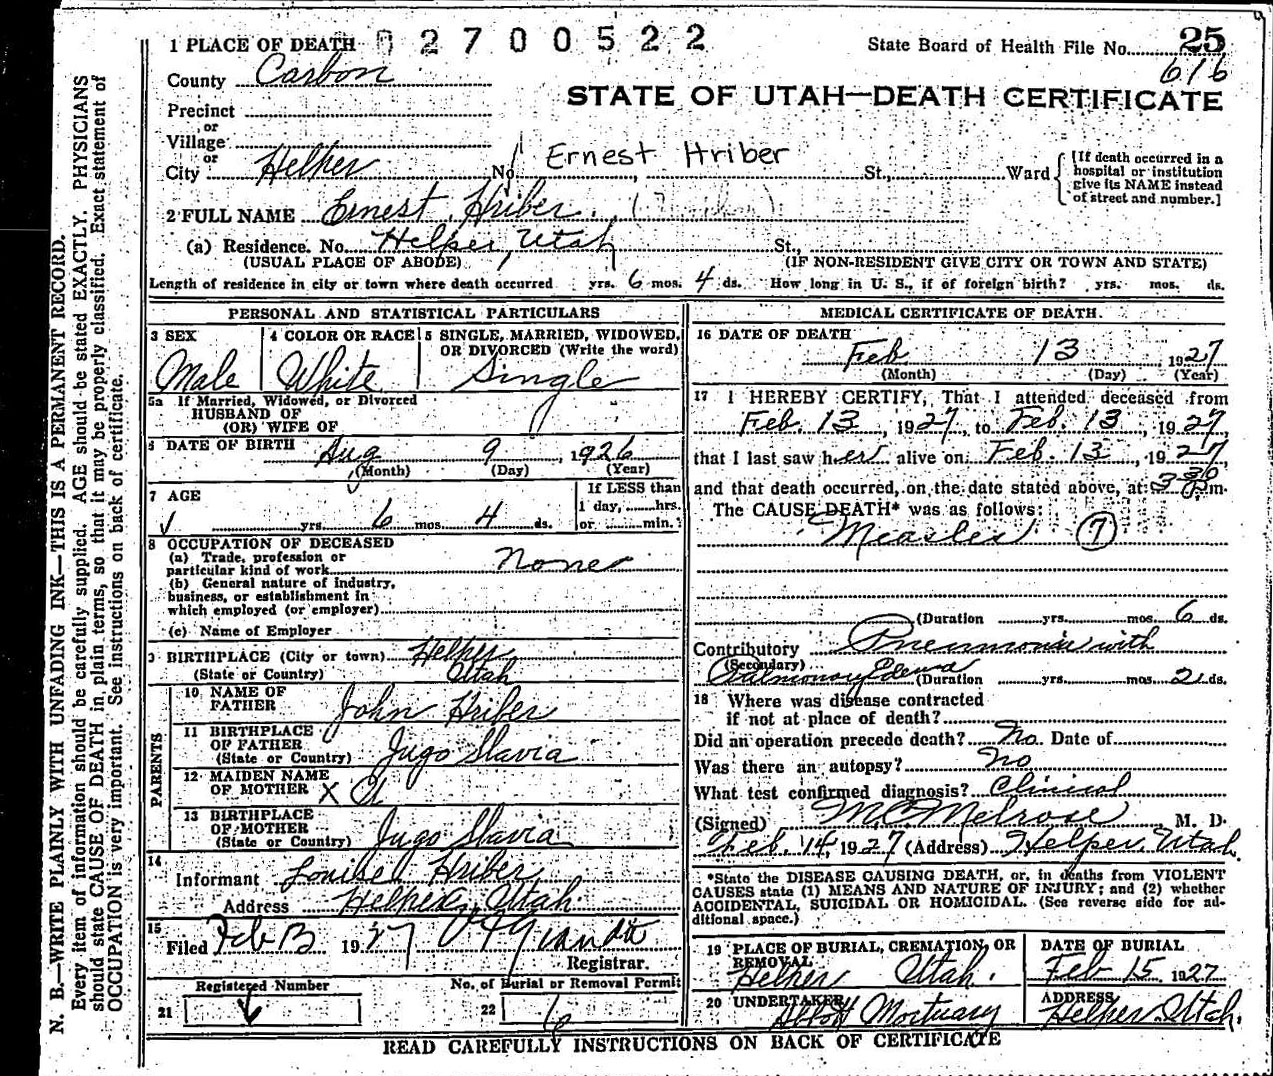 1 PLACE OF DEATH 0 2 7 0 0 5 2 2 State Board of Health File No. 25
616
County Carbon
STATE OF UTAH—DEATH CERTIFICATE
Precinct
or
Village
or
City Helper No. Ernest Hriber St., Ward {[If death occurred in a hospital or institution give its NAME instead of street and number.]
2 FULL NAME Ernest Hriber
(a) Residence. No. Helper, Utah St.,
(USUAL PLACE OF ABODE) (IF NON-RESIDENT GIVE CITY OR TOWN AND STATE)
Length of residence in city or town where death occurred yrs. 6 mos. 4 ds. How long in U. S., if of foreign birth? yrs. mos. ds.
PERSONAL AND STATISTICAL PARTICULARS
3 SEX
Male
4 COLOR OR RACE
White
5 SINGLE, MARRIED, WIDOWED,
OR DIVORCED (Write the word)
Single
5a If Married, Widowed, or Divorced
HUSBAND OF
(OR) WIFE OF
6 DATE OF BIRTH Aug 9, 1926
(Month) (Day) (Year)
7 AGE
yrs. 6 mos. 4 ds.
If LESS than
1 day, hrs.
or min.
8 OCCUPATION OF DECEASED
(a) Trade, profession or
particular kind of work None
(b) General nature of industry,
business, or establishment in
which employed (or employer)
(c) Name of Employer
9 BIRTHPLACE (City or town) Helper
(State or Country) Utah
PARENTS
10 NAME OF
FATHER John Hriber
11 BIRTHPLACE
OF FATHER
(State or Country) Jugo Slavia
12 MAIDEN NAME
OF MOTHER X
13 BIRTHPLACE
OF MOTHER
(State or Country) Jugo Slavia
14
Informant Hriber
Address Helper, Utah
15
Filed Feb 13 1927
Registrar.
Registered Number
21
No. of Burial or Removal Permit
22 6
MEDICAL CERTIFICATE OF DEATH.
16 DATE OF DEATH
Feb 13 1927
(Month) (Day) (Year)
17 I HEREBY CERTIFY, That I attended deceased from
Feb. 13, 1927, to Feb. 13, 1927,
that I last saw her alive on Feb. 13, 1927
and that death occurred, on the date stated above, at 3 30 Pm.
The CAUSE DEATH* was as follows:
Measles 7
(Duration yrs. mos. 6 ds.
Contributory Pneumonia with
(Secondary)
Pulmonary Edema (Duration yrs. mos. 2 ds.
18 Where was disease contracted
if not at place of death?
Did an operation precede death? No. Date of
Was there an autopsy? No
What test confirmed diagnosis? Clinical
(Signed) Melrose, M. D.
Feb. 14, 1927 (Address) Helper, Utah.
*State the DISEASE CAUSING DEATH, or, in deaths from VIOLENT
CAUSES state (1) MEANS AND NATURE OF INJURY; and (2) whether
ACCIDENTAL, SUICIDAL OR HOMICIDAL. (See reverse side for ad-
ditional space.)
19 PLACE OF BURIAL, CREMATION, OR
REMOVAL
Helper Utah.
DATE OF BURIAL
Feb 15 1927
20 UNDERTAKER
Abbott Mortuary
ADDRESS
Helper Utah.
READ CAREFULLY INSTRUCTIONS ON BACK OF CERTIFICATE
N. B.—WRITE PLAINLY WITH UNFADING INK—THIS IS A PERMANENT RECORD.
Every item of information should be carefully supplied. AGE should be stated EXACTLY. PHYSICIANS
should state CAUSE OF DEATH in plain terms, so that it may be properly classified. Exact statement of
OCCUPATION is very important. See instructions on back of certificate.